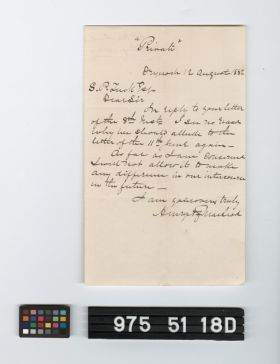 "Private"
12 August 188
S. Esq
Dear Sir
In reply to your letter
of the 8th Inst. I see no reason
why we should allude to the
letter of the 11th June again —
As far as I am concerned
I will not allow it to make
any difference in our intercourse
in the future —
I am yours very truly
975 51 18D